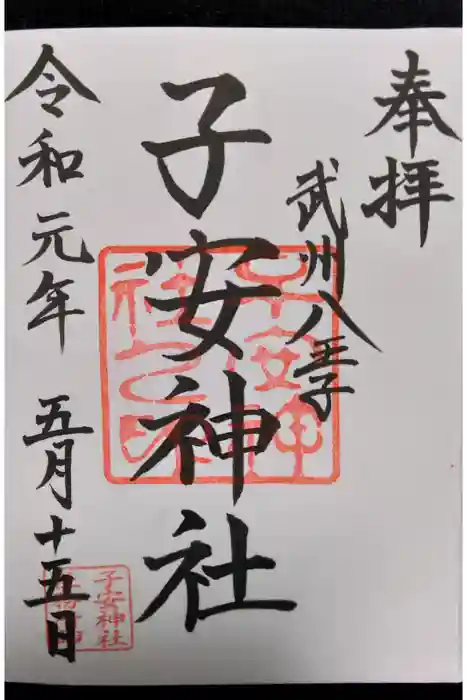 奉拝
武州八王子
子安神社
子安神社之印
令和元年 五月十五日
子安神社